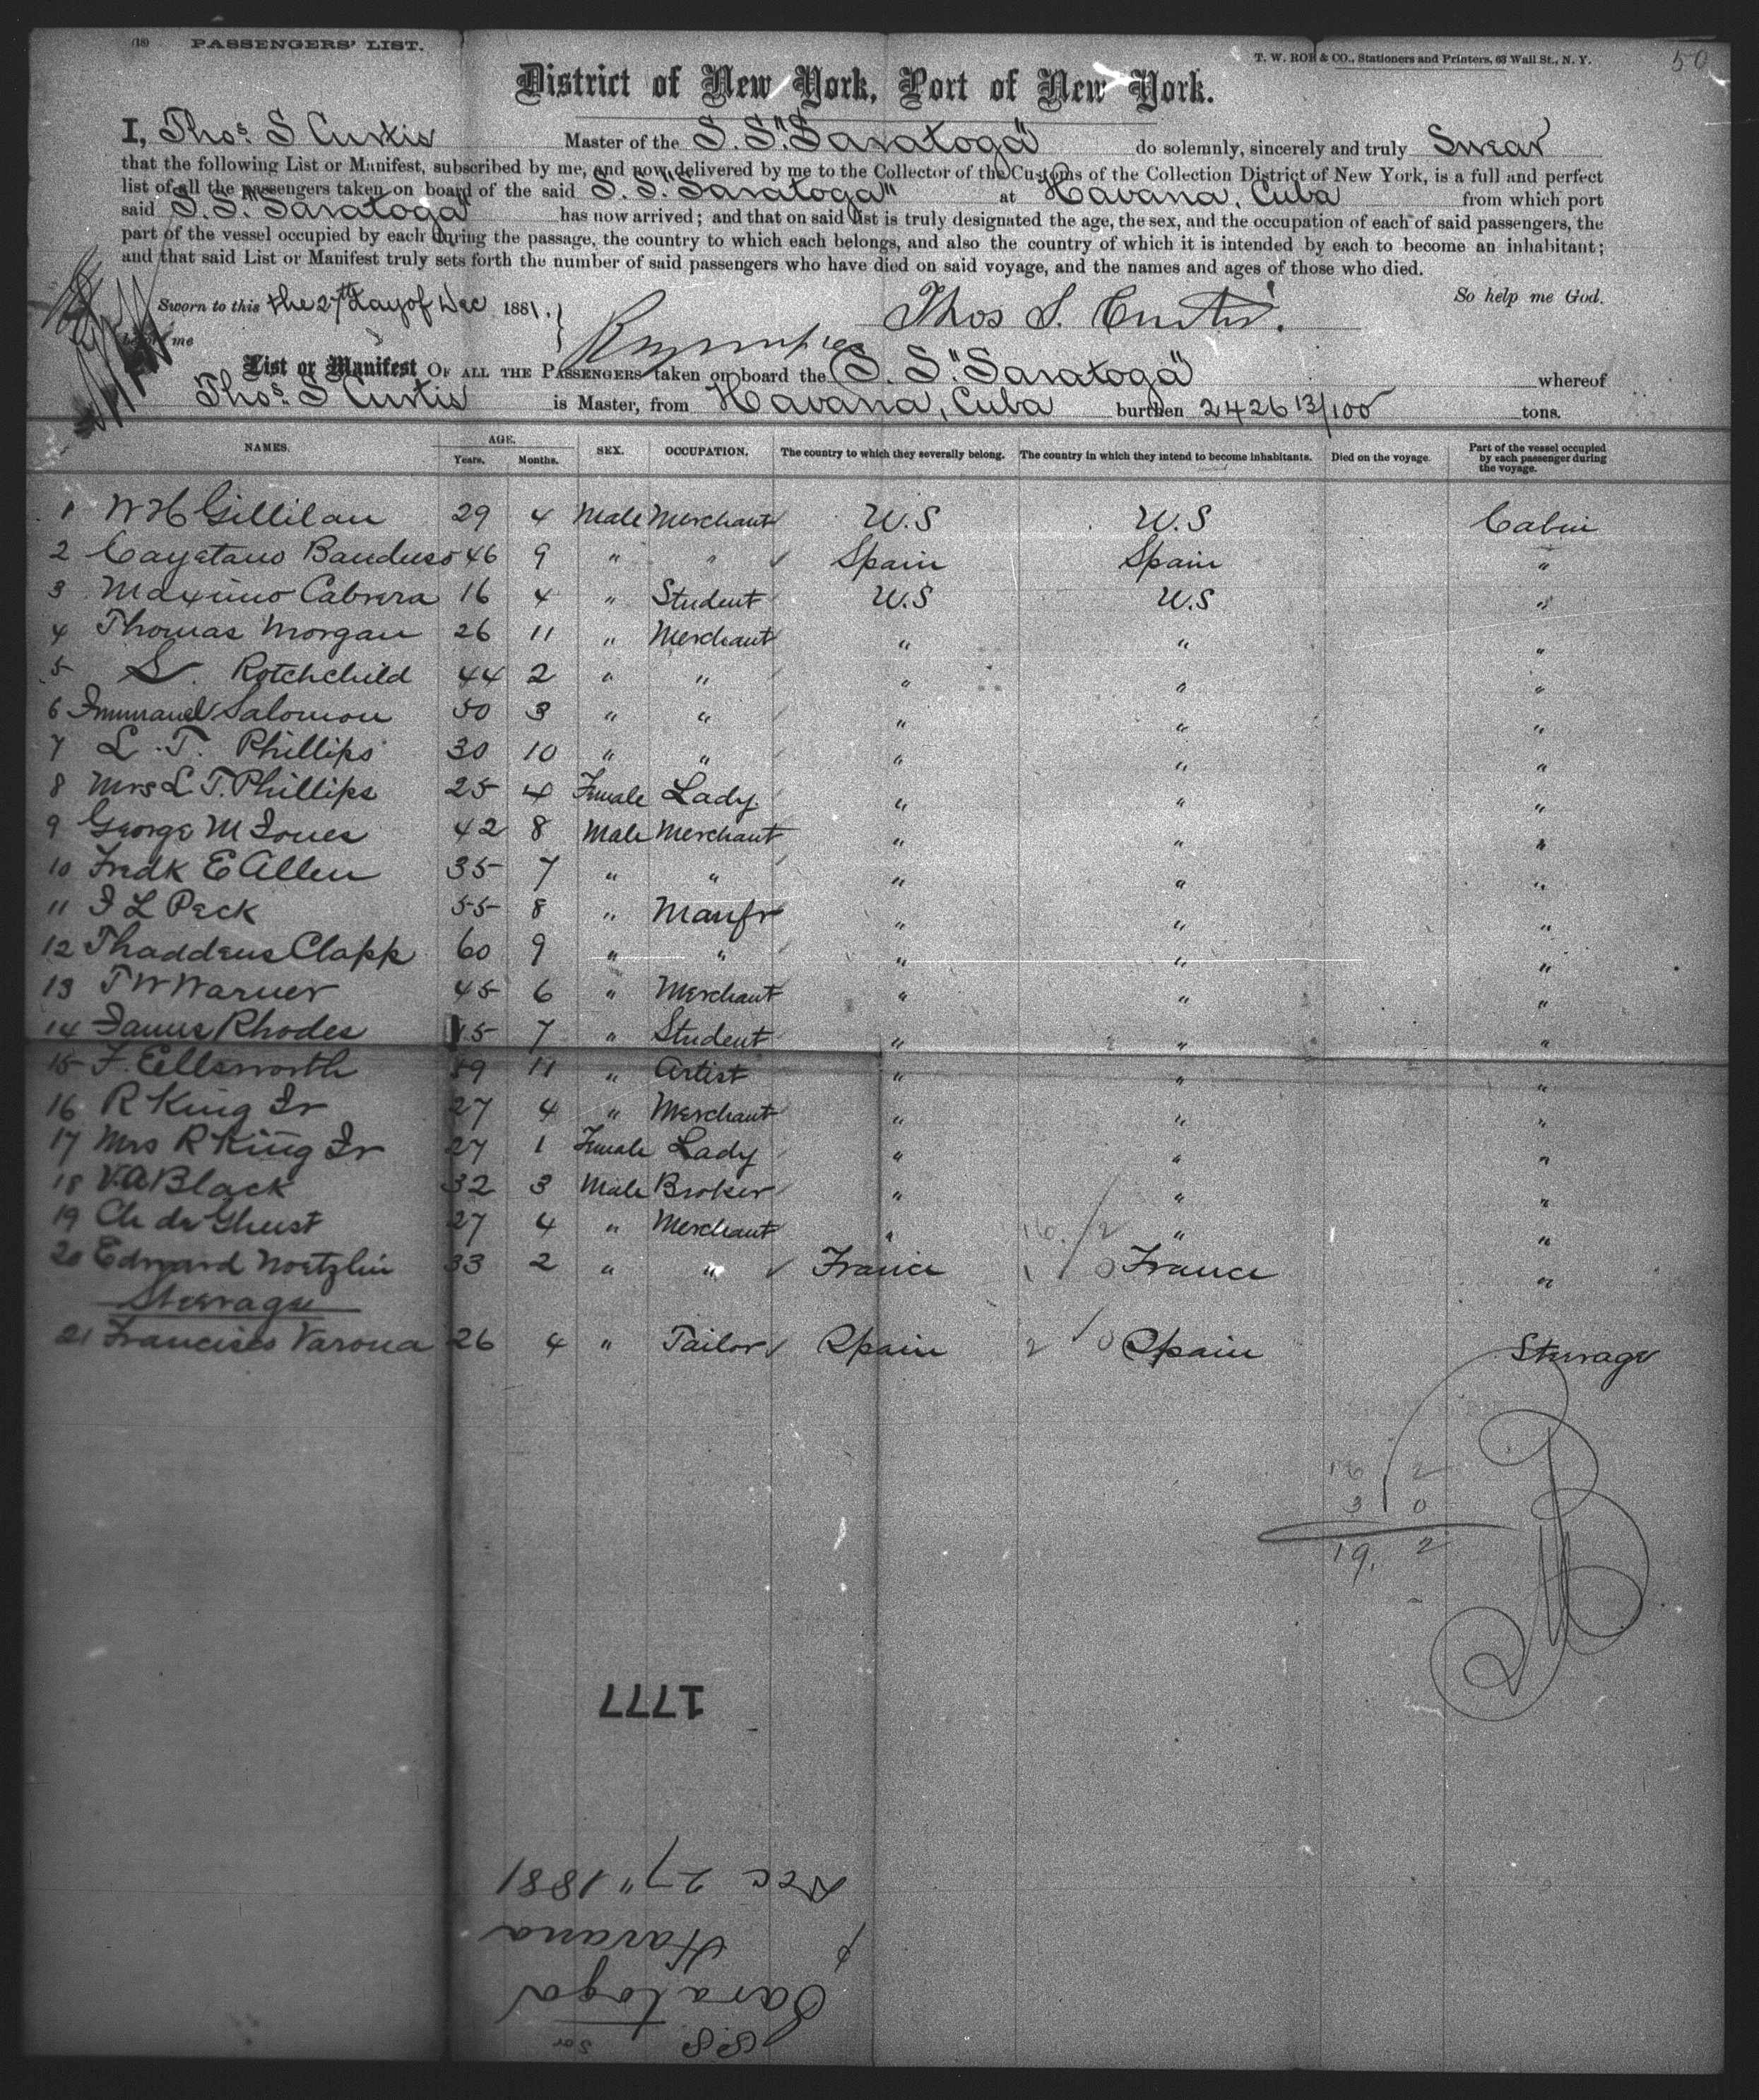 (18) PASSENGERS' LIST.
T. W. ROE & CO., Stationers and Printers, 63 Wall St., N. Y. 50
District of New York, Port of New York.
I, Thos. S Curtis Master of the S. S. "Saratoga" do solemnly, sincerely and truly Swear
that the following List or Manifest, subscribed by me, and now delivered by me to the Collector of the Customs of the Collection District of New York, is a full and perfect
list of all the passengers taken on board of the said S. S. "Saratoga" at Havana, Cuba from which port
said S. S. "Saratoga" has now arrived; and that on said list is truly designated the age, the sex, and the occupation of each of said passengers, the
part of the vessel occupied by each during the passage, the country to which each belongs, and also the country of which it is intended by each to become an inhabitant;
and that said List or Manifest truly sets forth the number of said passengers who have died on said voyage, and the names and ages of those who died.
So help me God.
Sworn to this the 27th day of Dec 1881.
Thos S. Curtis.
before me
List or Manifest OF ALL THE PASSENGERS taken on board the S. S. "Saratoga" whereof
Thos. S Curtis is Master, from Havana, Cuba burthen 2426 13/100 tons.
NAMES. AGE. Years. Months. SEX. OCCUPATION. The country to which they severally belong. The country in which they intend to become inhabitants. Died on the voyage. Part of the vessel occupied by each passenger during the voyage.
1 W H Gillilan 29 4 Male Merchant U.S U.S Cabin
2 Cayetano Banduso 46 9 " " Spain Spain "
3 Maximo Cabrera 16 4 " Student U.S U.S "
4 Thomas Morgan 26 11 " Merchant " " "
5 S. Rotchchild 44 2 " " " " "
6 Immanuel Salomon 50 3 " " " " "
7 L. T. Phillips 30 10 " " " " "
8 Mrs L. T. Phillips 25 4 Female Lady " " "
9 George M Jones 42 8 Male Merchant " " "
10 Fredk E Allen 35 7 " " " " "
11 J L Peck 55 8 " Manfr " " "
12 Thaddeus Clapp 60 9 " " " " "
13 T W Warner 45 6 " Merchant " " "
14 James Rhodes 15 7 " Student " " "
15 F. Ellsworth 59 11 " Artist " " "
16 R King Jr 27 4 " Merchant " " "
17 Mrs R King Jr 27 1 Female Lady " " "
18 V. A Black 32 3 Male Broker " " "
19 Ch de Gheest 27 4 " Merchant " 16/2 " "
20 Edward Noetzlin 33 2 " " France 1/0 France "
Steerage
21 Francisco Varona 26 4 " Tailor Spain 2/0 Spain Steerage
16 2
3 0
19. 2
1777
Dec 27" 1881
Havana
Saratoga
SS